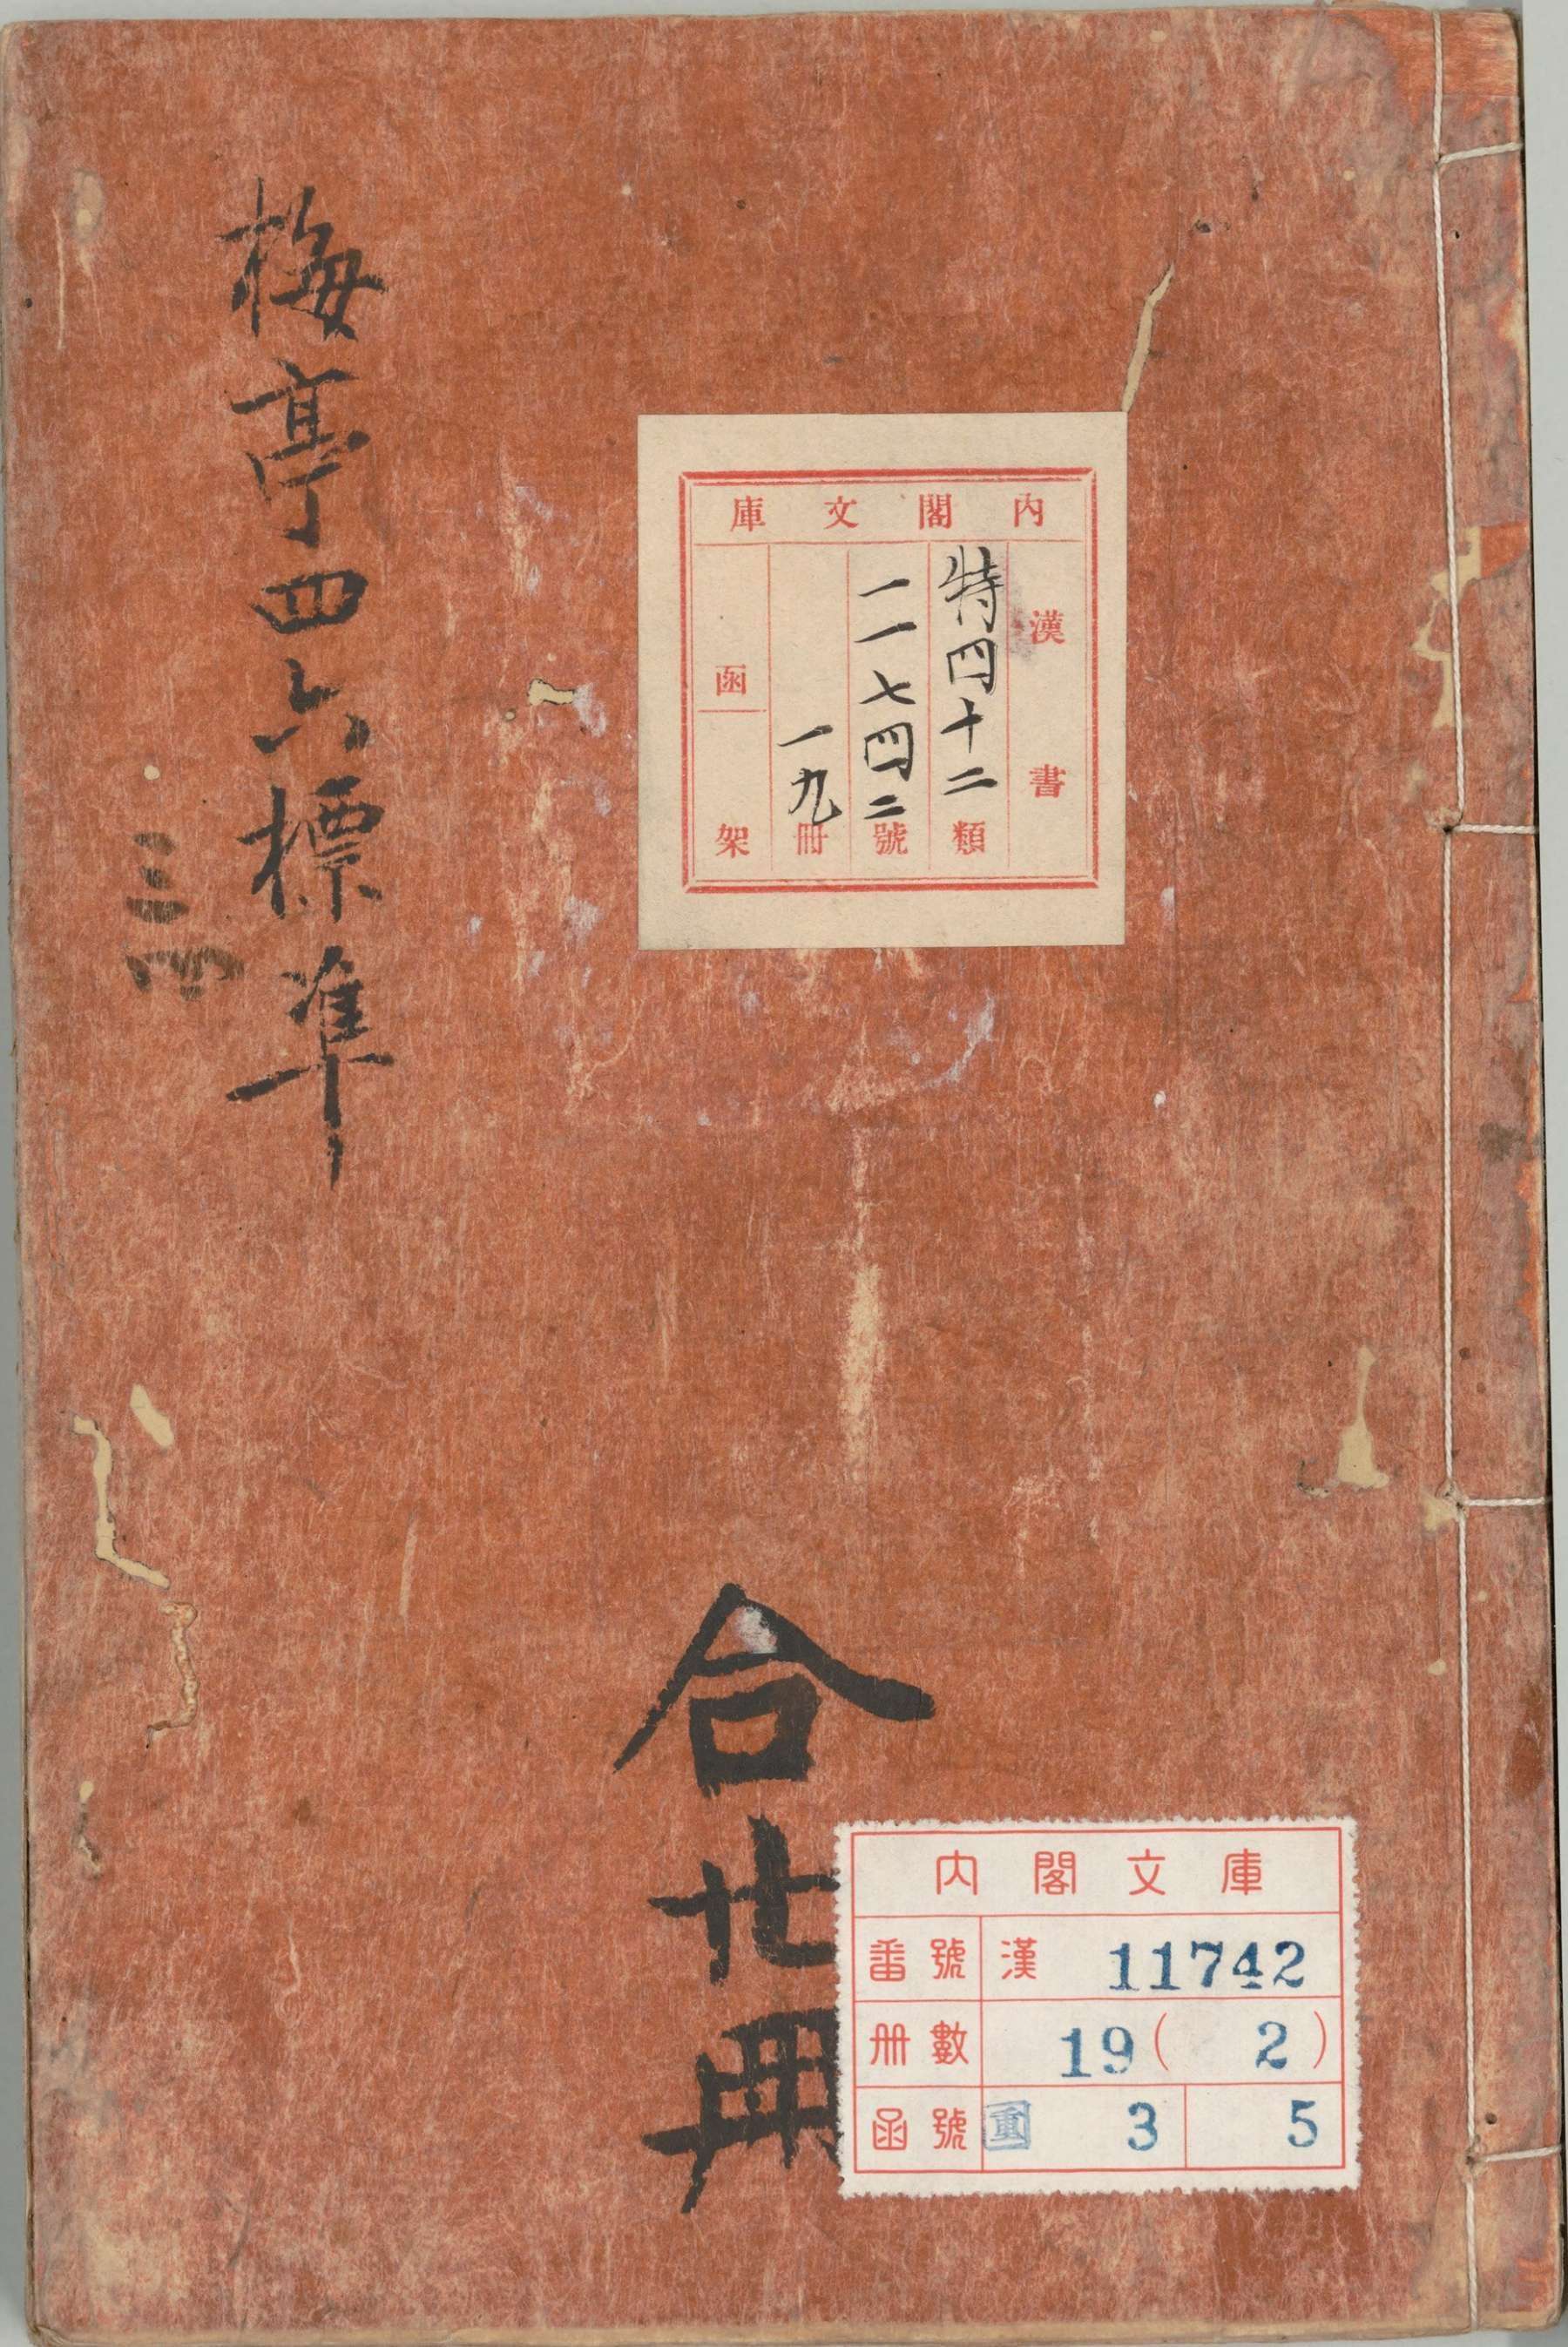 梅亭四六標準
三四
内閣文庫
漢書
特四十二類
一一七四二號
一九冊
函
架
合廿冊
内閣文庫
番號 漢 11742
冊數 19(2)
函號 重 3 5